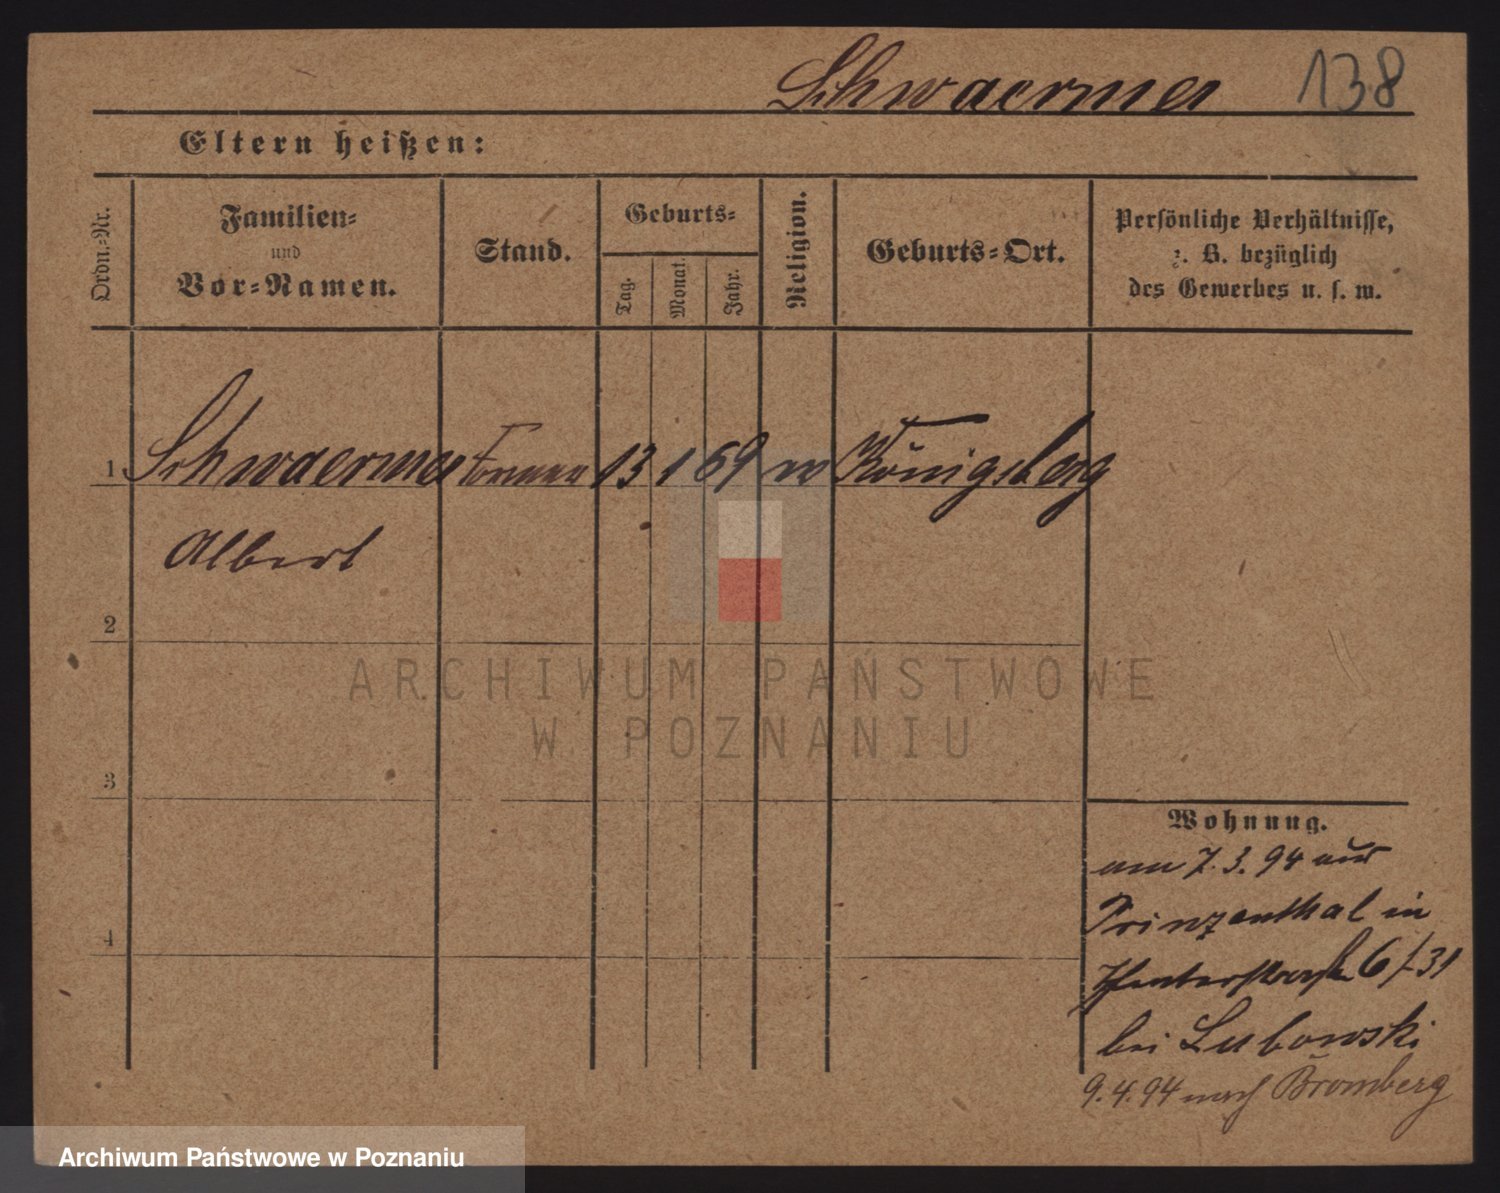 Schwaermer 138
Eltern heißen:
Ordn.-Nr.
Familien-
und
Vor-Namen.
Stand.
Geburts-
Tag.
Monat.
Jahr.
Religion.
Geburts-Ort.
Persönliche Verhältnisse,
z. B. bezüglich
des Gewerbes u. s. w.
1 Schwaermer Former 13 1 69 Königsberg
Albert
2
ARCHIWUM PAŃSTWOWE
W POZNANIU
3
Wohnung.
am 7.3.94 aus
Prinzenthal in
6/31
4
bei Lubowski
9.4.94 nach Bromberg
Archiwum Państwowe w Poznaniu